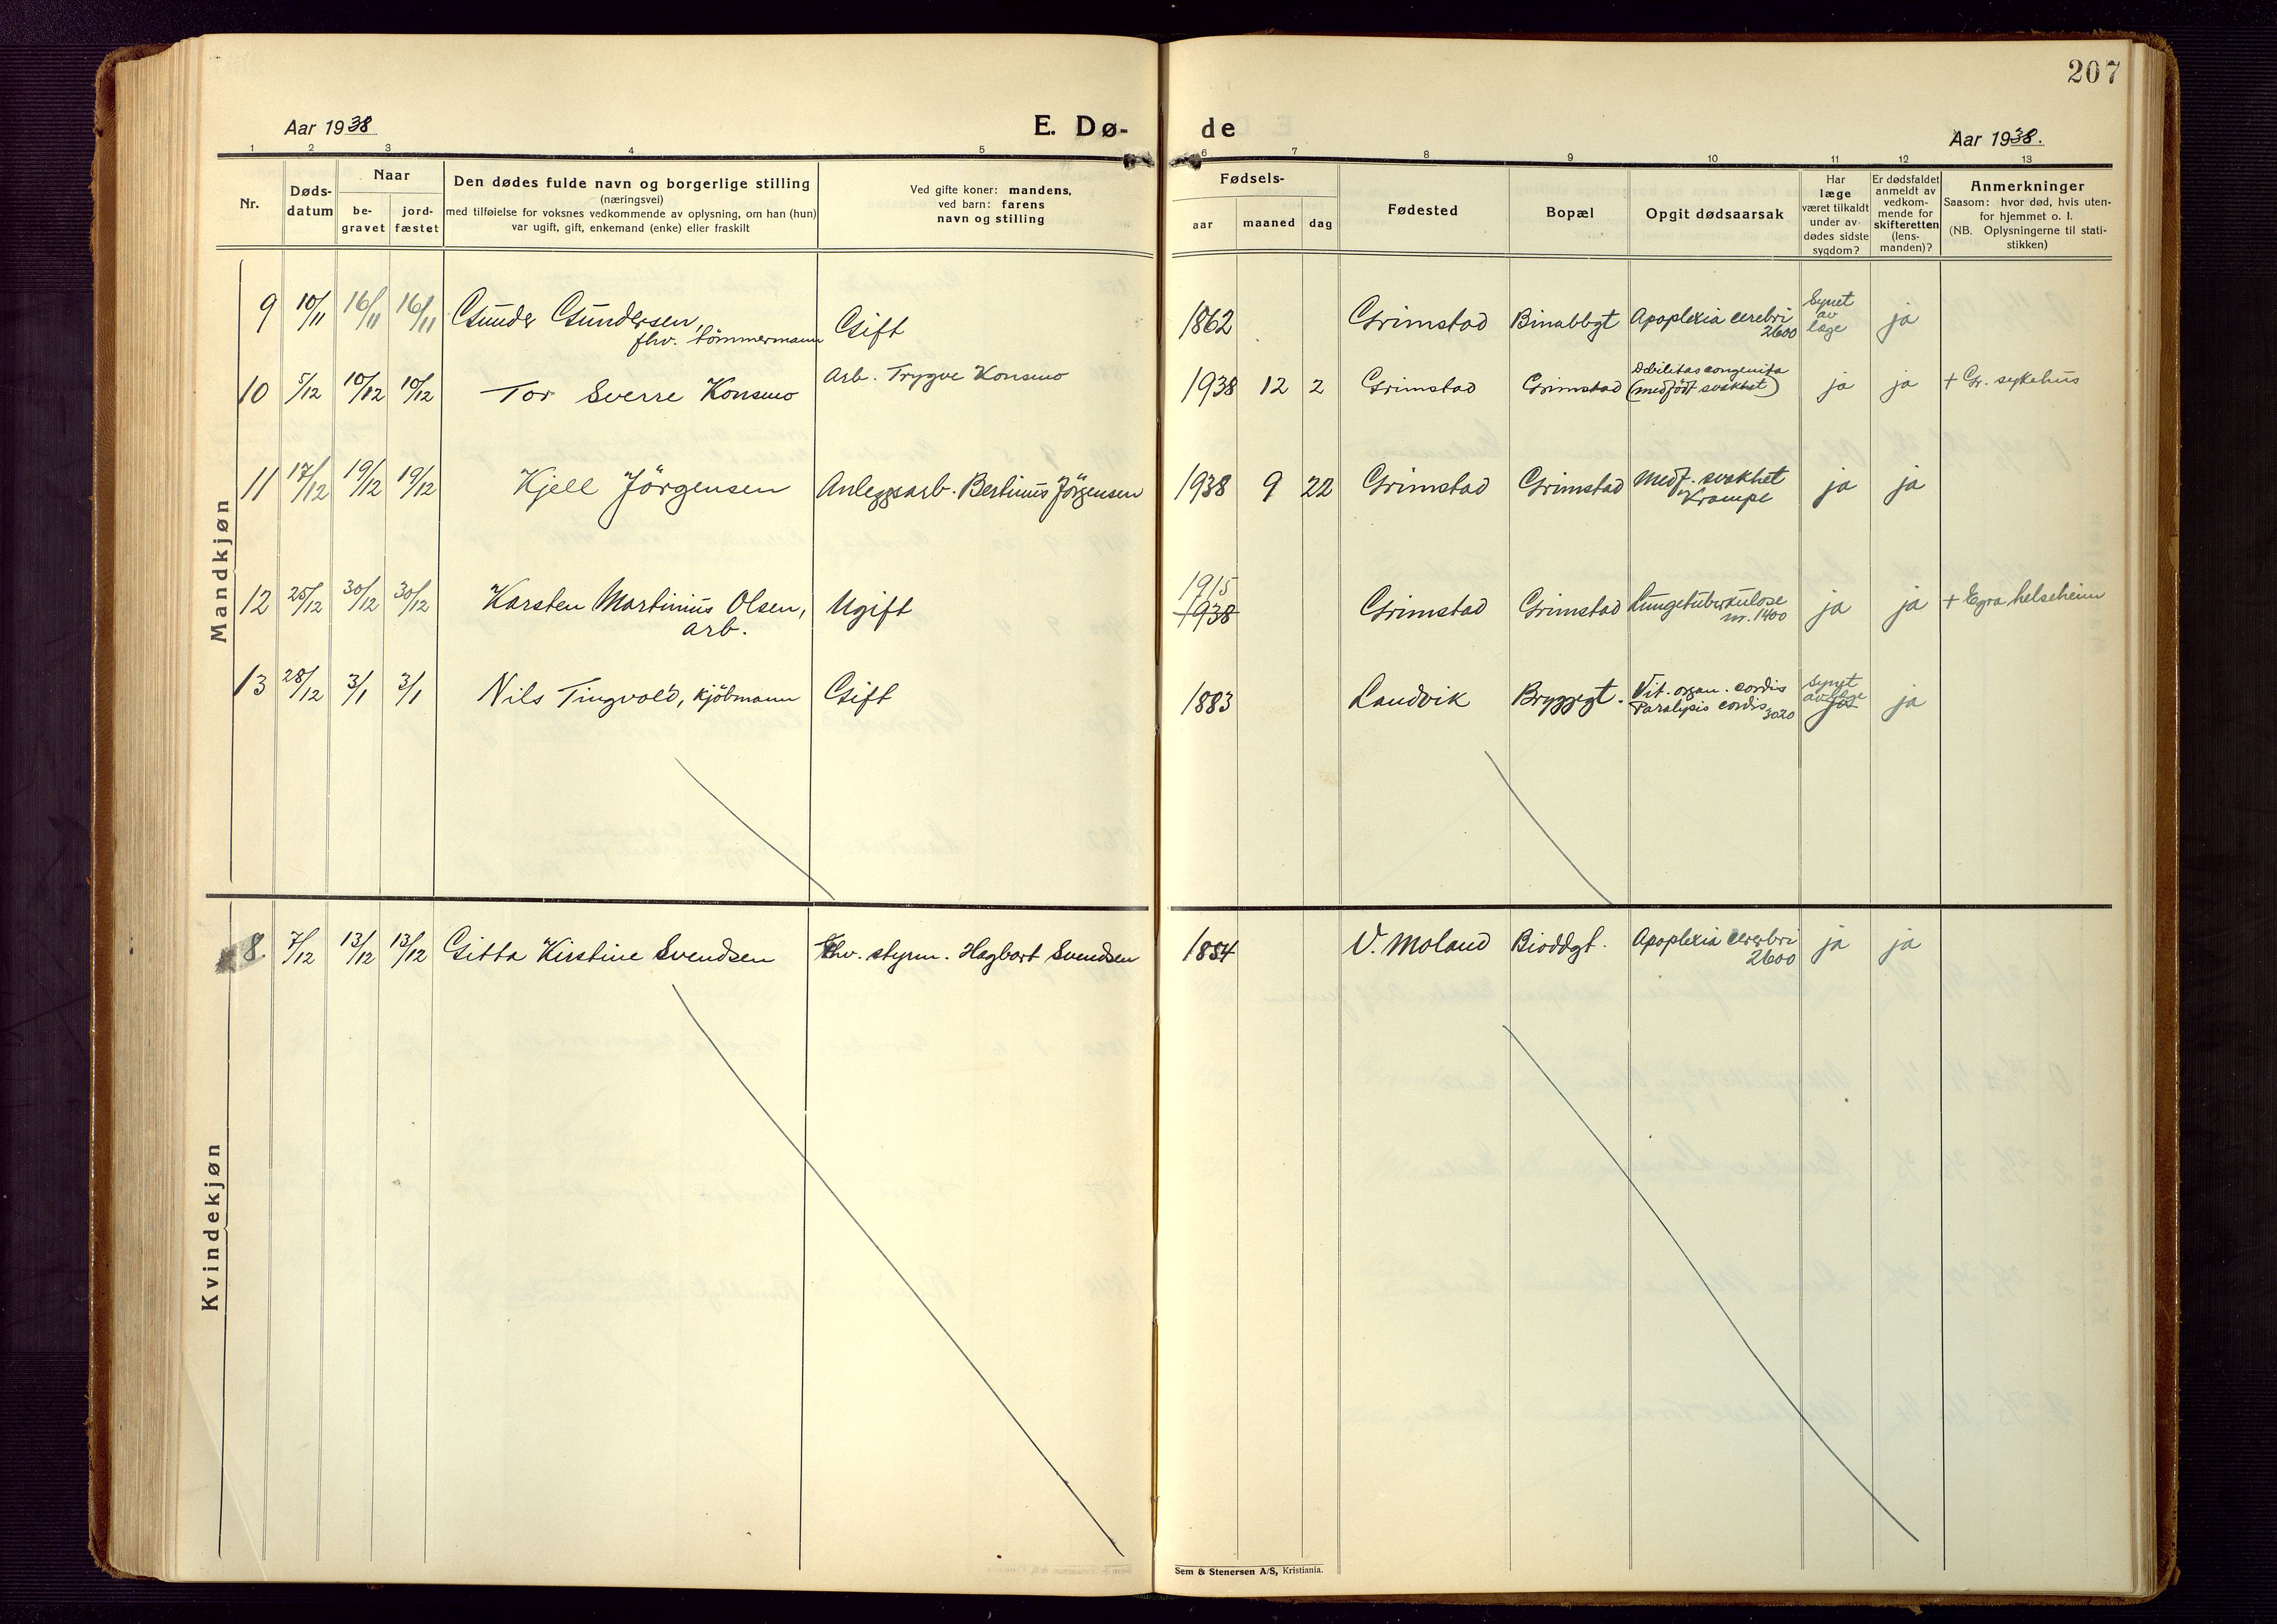 207
Aar 1938
E. Dø-
de
Aar 1938.
1 2 3 4 5 6 7 8 9 10 11 12 13
Nr.
Døds-
datum
Naar
be-
gravet
jord-
fæstet
Den dødes fulde navn og borgerlige stilling
(næringsvei)
med tilføielse for voksnes vedkommende av oplysning, om han (hun)
var ugift, gift, enkemand (enke) eller fraskilt
Ved gifte koner: mandens,
ved barn: farens
navn og stilling
Fødsels-
aar maaned dag
Fødested
Bopæl
Opgit dødsaarsak
Har
læge
været tilkaldt
under av-
dødes sidste
sygdom?
Er dødsfaldet
anmeldt av
vedkom-
mende for
skifteretten
(lens-
manden)?
Anmerkninger
Saasom: hvor død, hvis uten-
for hjemmet o. l.
(NB. Oplysningerne til stati-
stikken)
Mandkjøn
9 10/11 16/11 16/11 Gunder Gundersen,
fhv. tömmermann
Gift
1862 Grimstad Binabbgt Apoplexia cerebri
2600
Synet
av
læge
ja
10 5/12 10/12 10/12 Tor Sverre Konsmo
Arb. Trygve Konsmo
1938 12 2 Grimstad Grimstad Debilitas congenita
(medfödt svakhet)
ja ja + Gr. sykehus
11 17/12 19/12 19/12 Kjell Jörgensen Anleggsarb. Bertinus Jörgensen
1938 9 22 Grimstad Grimstad Medf. svakhet
Krampe
ja ja
12 25/12 30/12 30/12 Karsten Martinius Olsen,
arb.
Ugift
1915
1938 Grimstad Grimstad Lungetuberkulose
nr. 1400
ja ja + Egra helseheim
13 28/12 3/1 3/1 Nils Tingvold, kjöbmann Gift
1883 Landvik Bryggegt. Vit. organ. cordis
Paralysis cordis 3020
Synet
av læge
ja
ja
Kvindekjøn
8. 7/12 13/12 13/12 Gitta Kirstine Svendsen fhv. styrm. Hagbart Svendsen
1854 V. Moland Bioddgt. Apoplexia cerebri
2600
ja ja
Sem & Stenersen A/S, Kristiania.